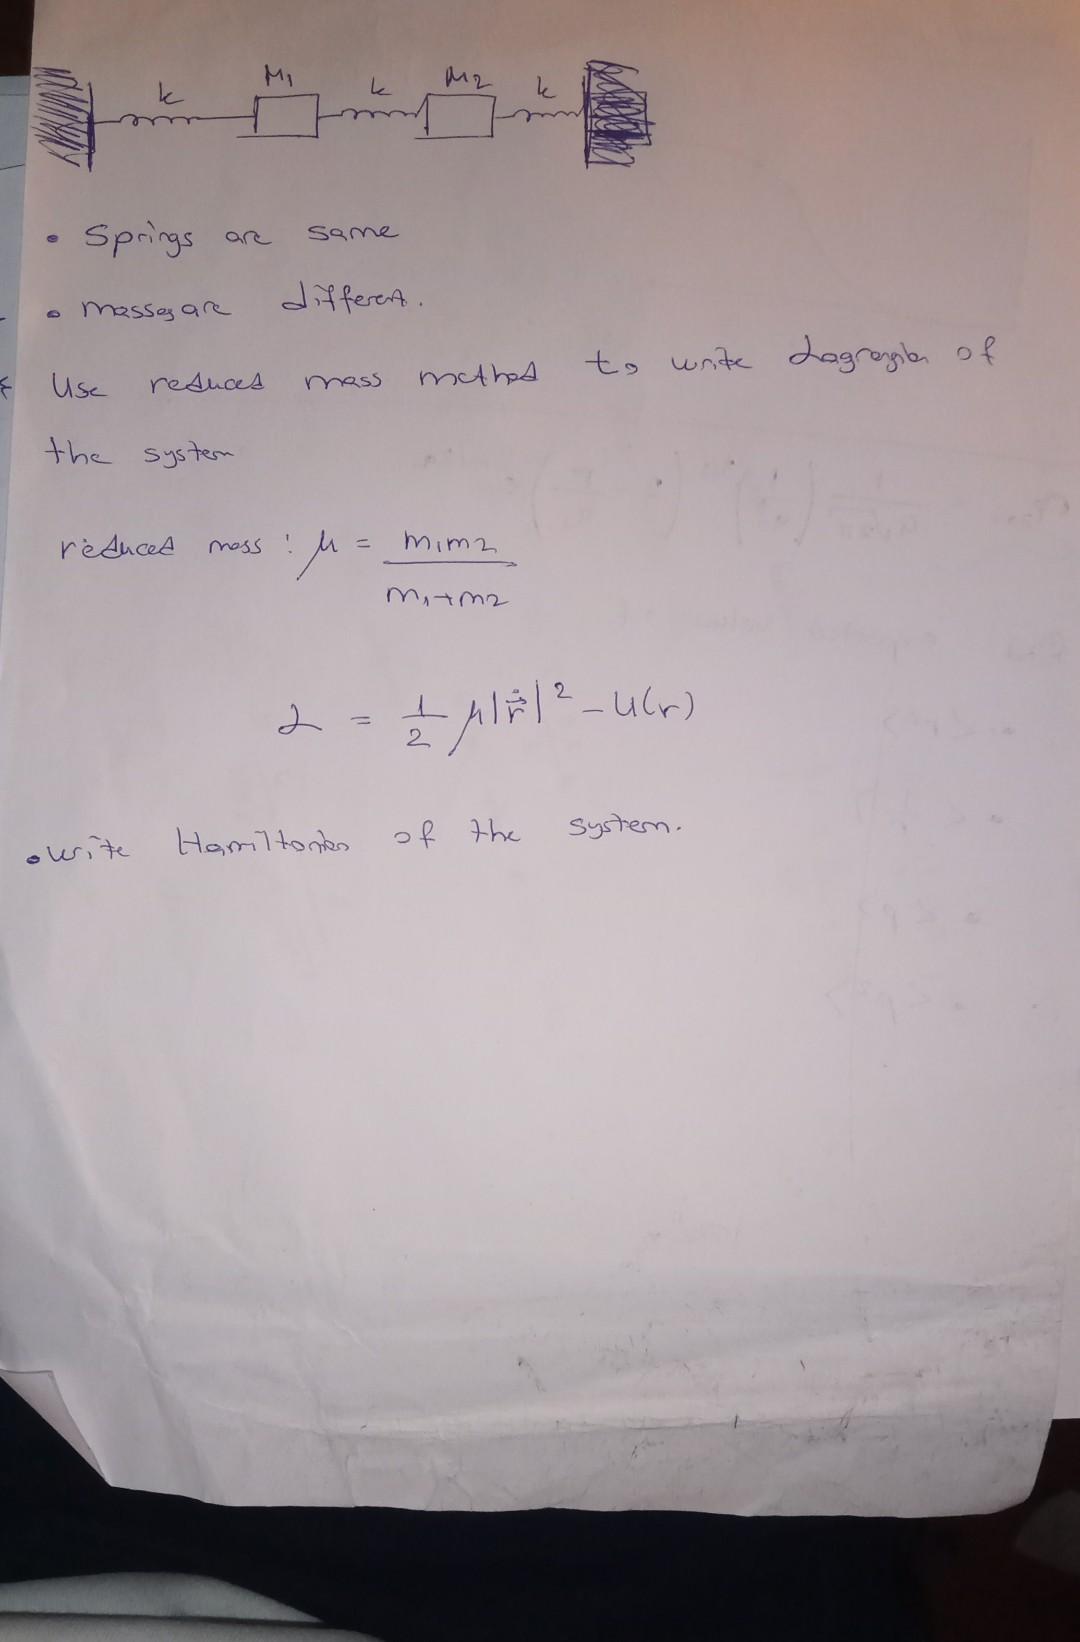 k M1 k M2 k
• Springs are same
• masses are different.
Use reduced mass method to write Lagrangian of
the system
reduced mass : μ = m1m2 / m1+m2
L = 1/2 μ|ṙ⃗|² - U(r)
• write Hamiltonian of the system.